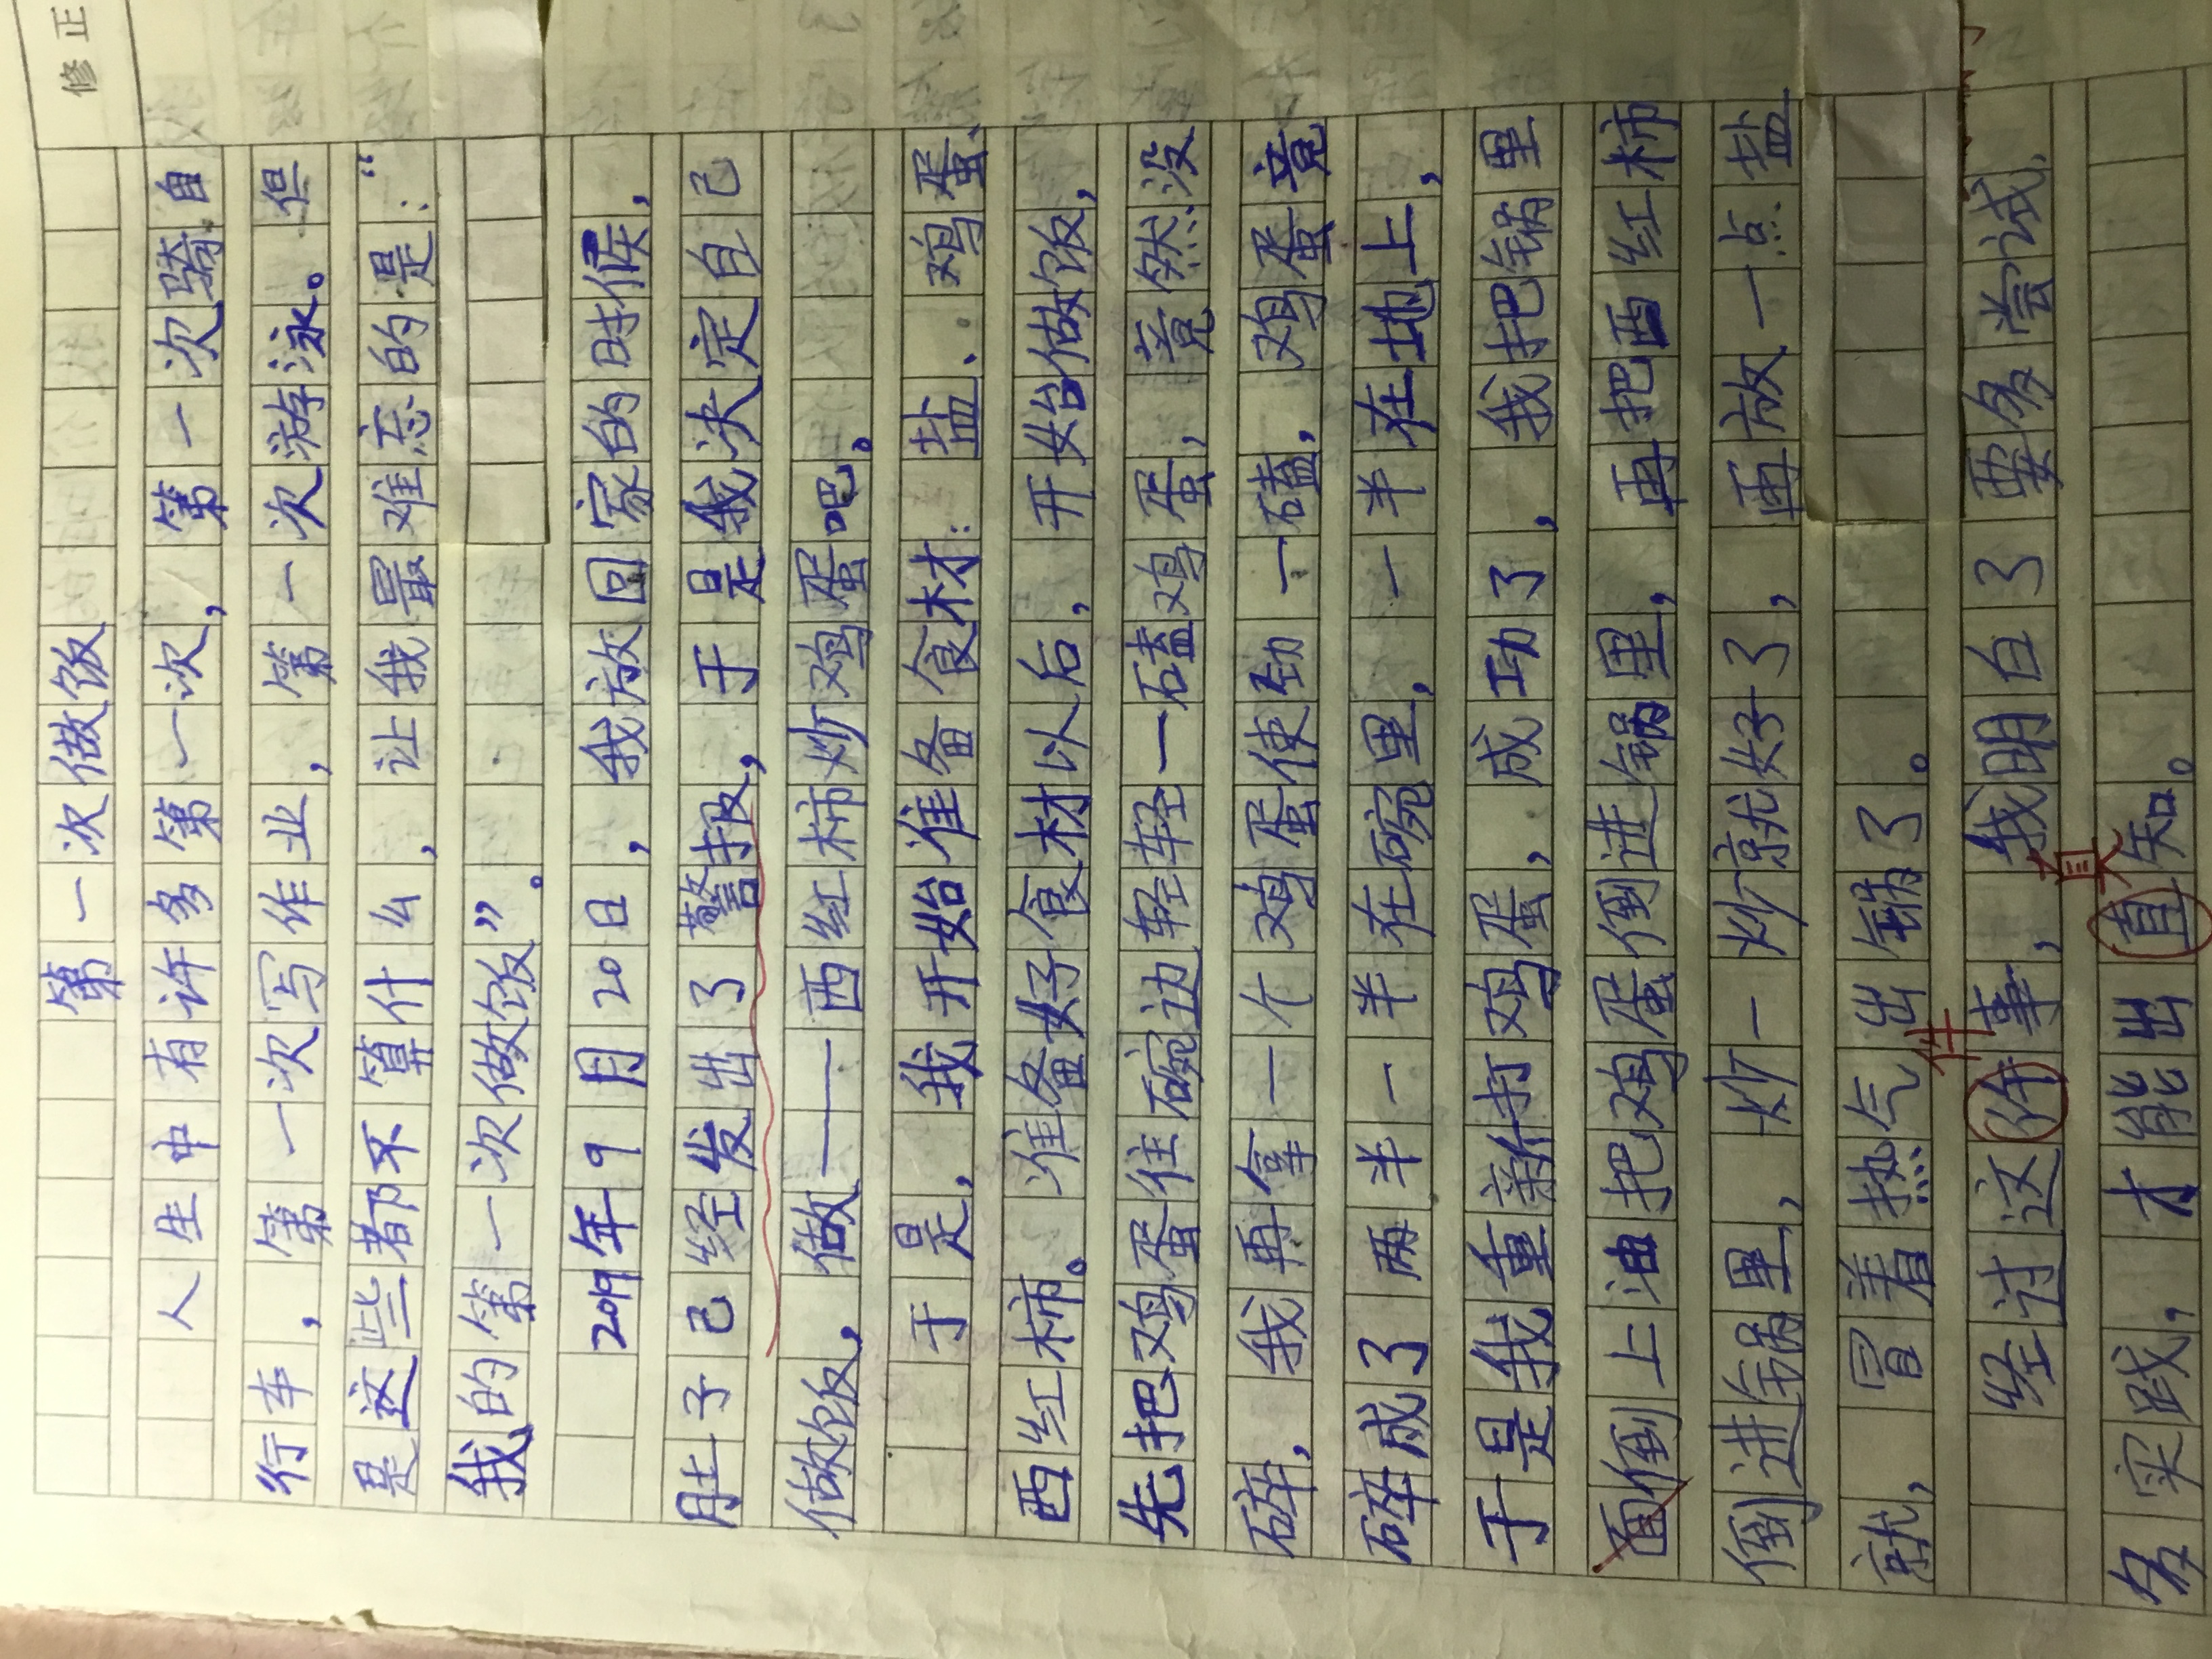 修正
第一次做饭
人生中有许多第一次，第一次骑自
行车，第一次写作业，第一次游泳。但
是这些都不算什么，让我最难忘的是：“
我的第一次做饭”。
2019年9月20日，我放回家的时候，
肚子己经发出了警报，于是我决定自己
做饭，做——西红柿炒鸡蛋吧。
于是，我开始准备食材：盐、鸡蛋、
西红柿。准备好食材以后，开始做饭，
先把鸡蛋往碗边轻轻一磕鸡蛋，竟然没
碎，我再拿一个鸡蛋使劲一磕，鸡蛋竟
碎成了两半一半在碗里，一半在地上，
于是我重新打鸡蛋，成功了，我把锅里
面倒上油把鸡蛋倒进锅里，再把西红柿
倒进锅里，炒一炒就好了，再放一点盐
就，冒着热气出锅了。
件
经过这件事，我明白了要多尝试，
真
多实践，才能出直知。